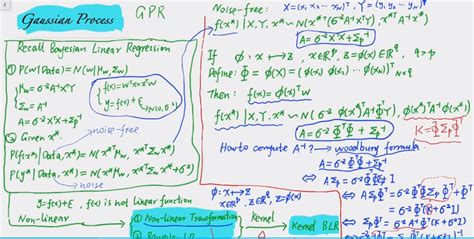 Gaussian Process GPR
Recall Bayesian Linear Regression
① P(w|Data) = N(w|μw, Σw)
μw = σ⁻²A⁻¹XᵀY
Σw = A⁻¹
A = σ⁻²XᵀX + Σp⁻¹
f(x) = wᵀx = xᵀw
y = f(x) + ε
N(0, σ²)
② Given x*
noise-free
P(f(x*)|Data, x*) = N(x*ᵀμw, x*ᵀΣw x*)
P(y*|Data, x*) = N(x*ᵀμw, x*ᵀΣw x* + σ²)
noise
y = f(x) + ε, f(x) is not linear function
Non-linear
① Non-linear Transformation
Kernel
Kernel BLR
Noise-free: X = (x₁, x₂ ⋯ xN)ᵀ, Y = (y₁, y₂ ⋯ yN)ᵀ
f(x*) | X, Y, x* ~ N(x*ᵀ(σ⁻²A⁻¹XᵀY), x*ᵀA⁻¹x*)
A = σ⁻²XᵀX + Σp⁻¹
If φ: x ↦ z, x∈ℝᵖ, z = φ(x) ∈ ℝ^q, q > p
Define: Φ = φ(X) = (φ(x₁), φ(x₂) ⋯ φ(xN))ᵀ N×q
Then: f(x) = φ(x)ᵀw
f(x*) | X, Y, x* ~ N(σ⁻² φ(x*)ᵀA⁻¹ΦᵀY, φ(x*)ᵀA⁻¹φ(x*))
A = σ⁻² ΦᵀΦ + Σp⁻¹
K = ΦΣpΦᵀ
How to compute A⁻¹? → woodbury formula
A = σ⁻² ΦᵀΦ + Σp⁻¹
φ: x ↦ z
x∈ℝᵖ, z∈ℝ^q, z = φ(x)
⇔ AΣp = σ⁻² ΦᵀΦΣp + I
⇔ AΣpΦᵀ = σ⁻² ΦᵀΦΣpΦᵀ + Φᵀ
= σ⁻² Φᵀ(K + σ²I)